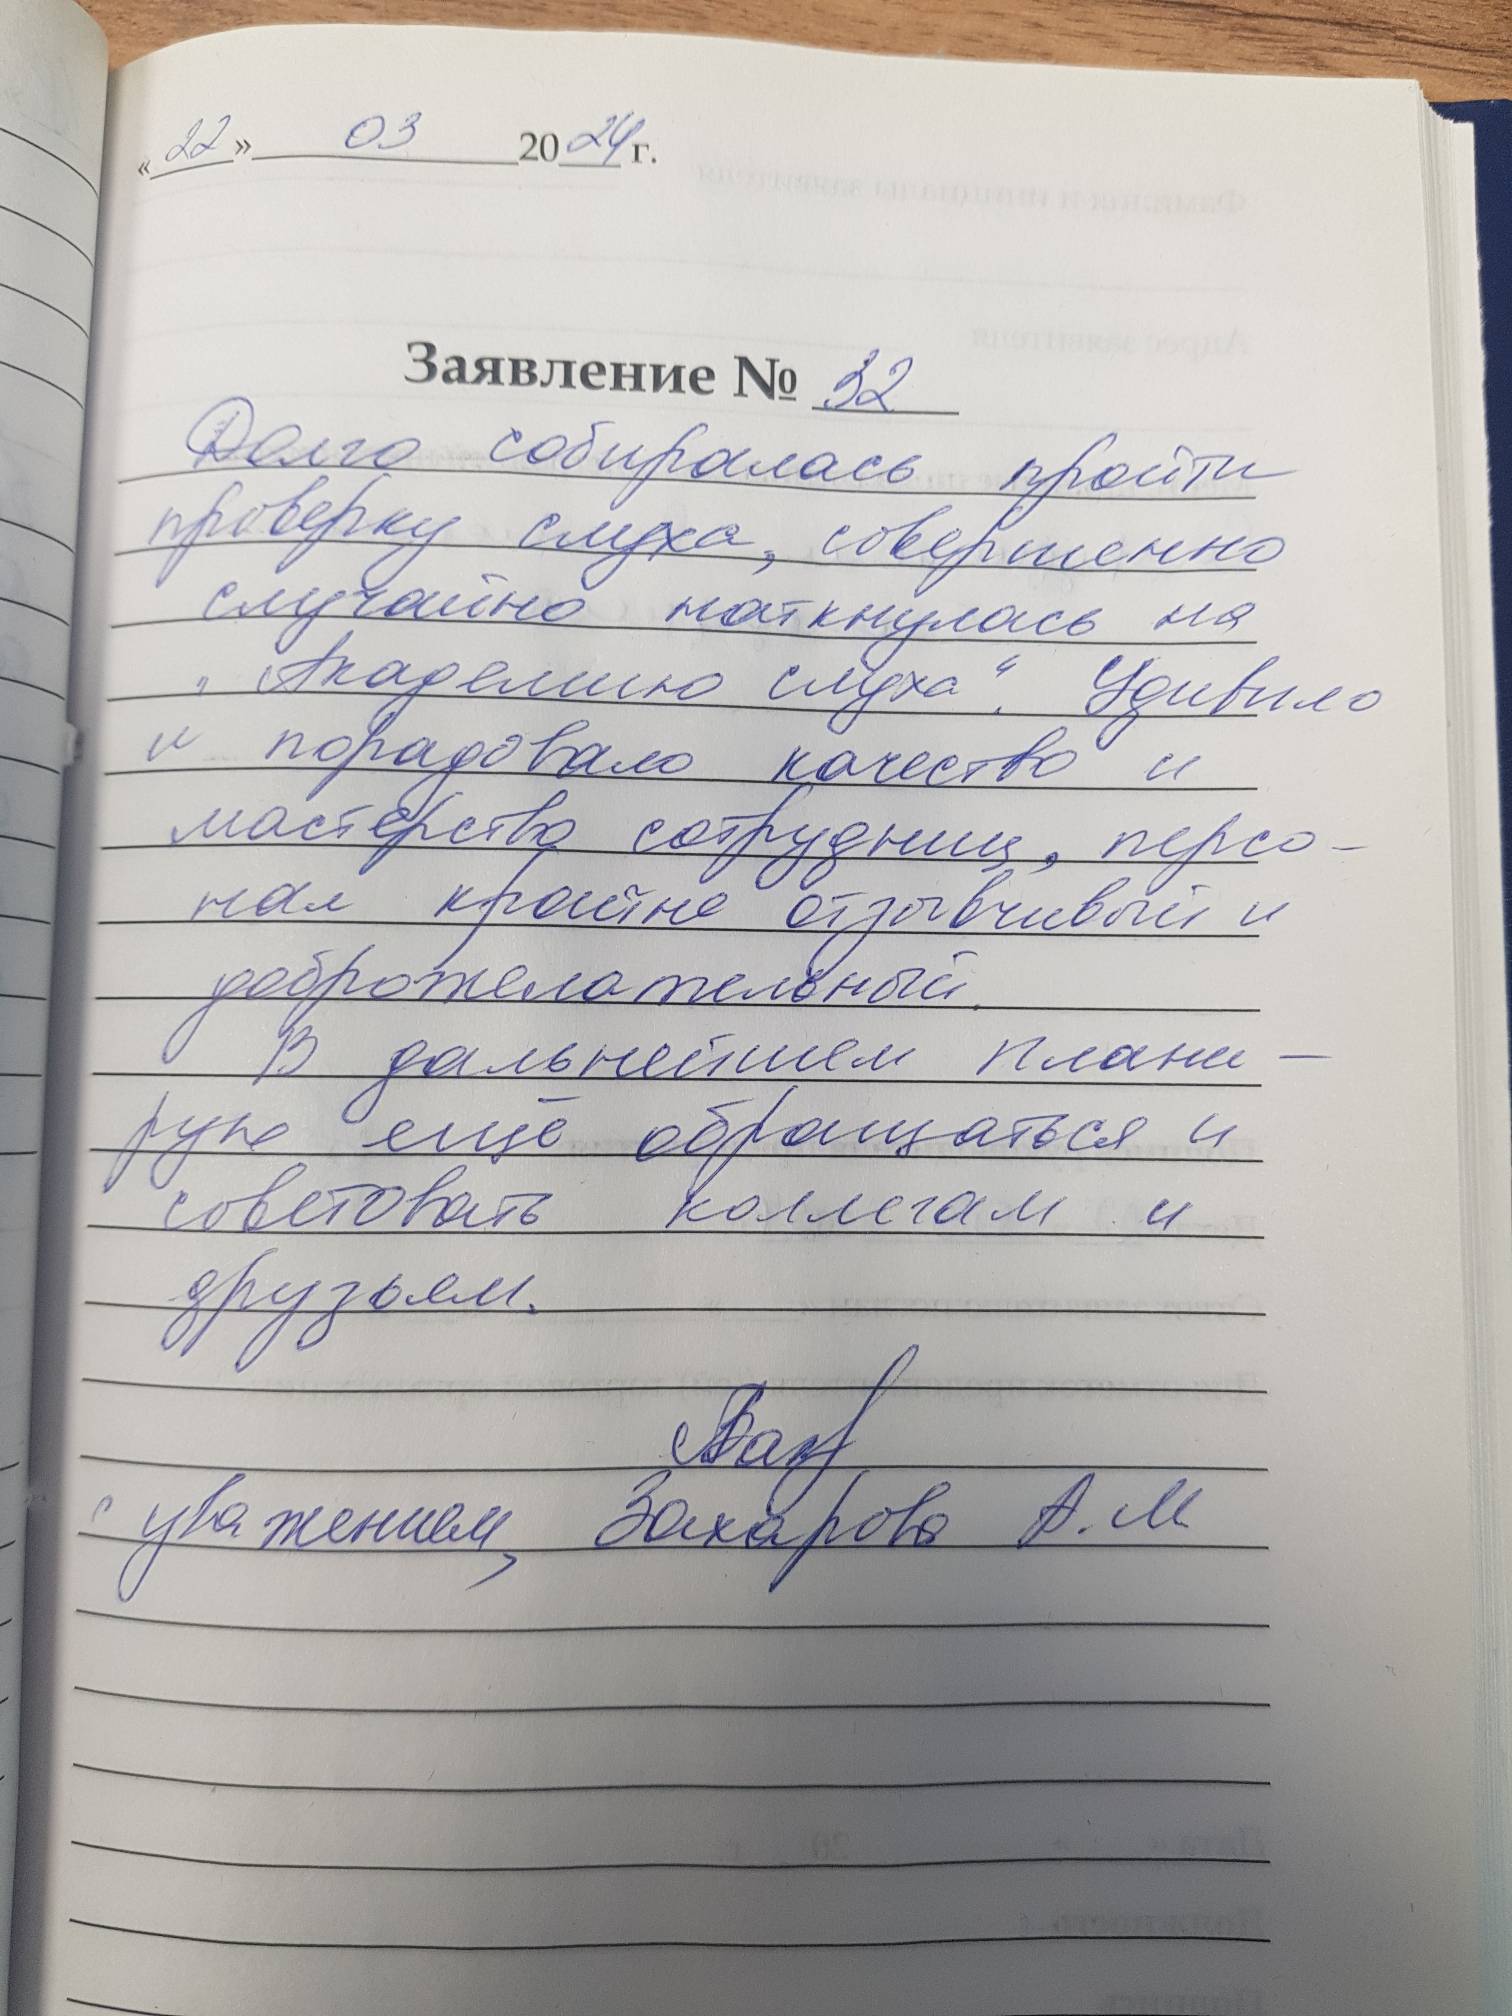 «22» 03 2024 г.
Заявление № 32
Долго собиралась пройти
проверку слуха, совершенно
случайно наткнулась на
„Академию слуха“. Удивило
и порадовало качество и
мастерство сотрудниц, персо-
нал крайне отзывчивый и
доброжелательный.
В дальнейшем плани-
рую ещё обращаться и
советовать коллегам и
друзьям.
с уважением, Захарова А.М